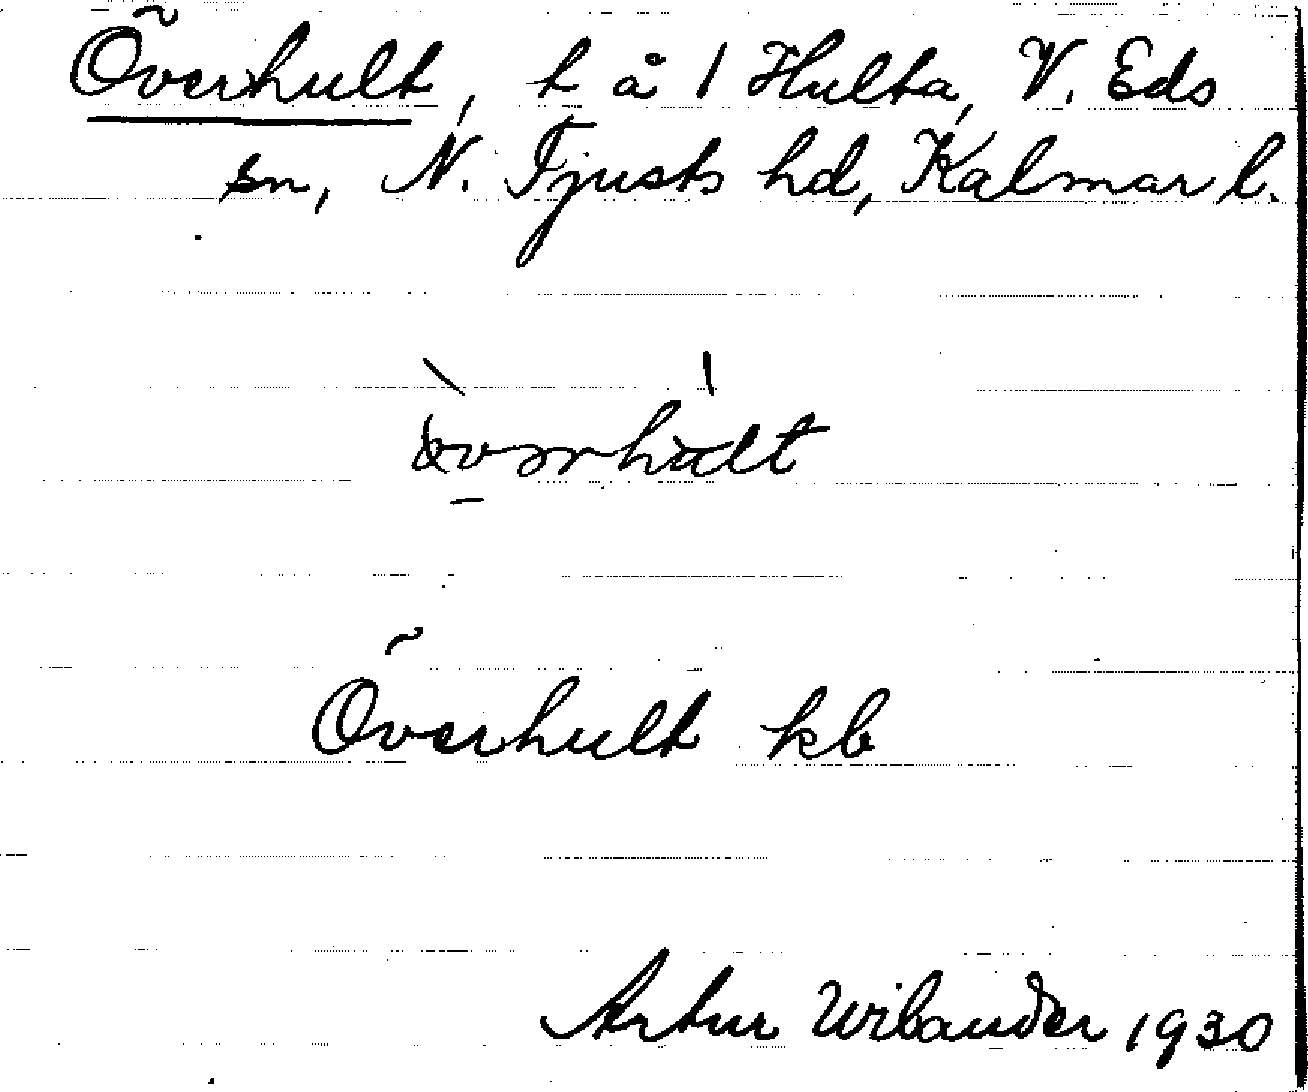 Överhult, t å 1 Hulta, V. Eds
sn, N. Tjusts hd, Kalmar l.
Överhult kb
Artur Wilander 1930